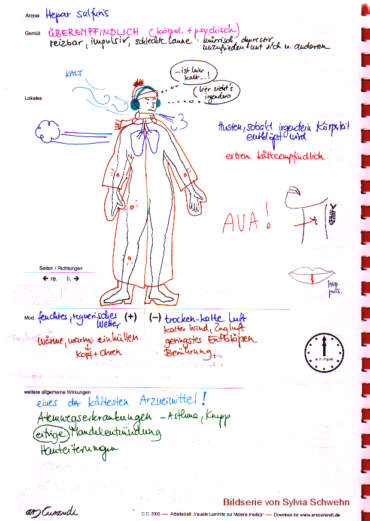 Arznei Hepar sulfuris
Gemüt ÜBEREMPFINDLICH (körperl. + psychisch)
reizbar, impulsiv, schlechte Laune, mürrisch, depressiv
unzufrieden mit sich u. anderen
KALT
- ist hier
kalt...!
hier zieht's
irgendwo
Lokales
Husten, sobald irgendein Körperteil
entblößt wird
extrem kälteempfindlich
AUA!
Seiten / Richtungen
re. li.
Mod. feuchtes, regnerisches (+)
Wetter
Wärme, warm einhüllen
Kopf + Ohren
(-) trocken-kalte Luft
kalter Wind, Zugluft
geringstes Entblößen
Berührung
weitere allgemeine Wirkungen
eines der kältesten Arzneimittel!
Atemwegserkrankungen - Asthma, Krupp
eitrige Mandelentzündung
Hauteiterungen
Bildserie von Sylvia Schwehn